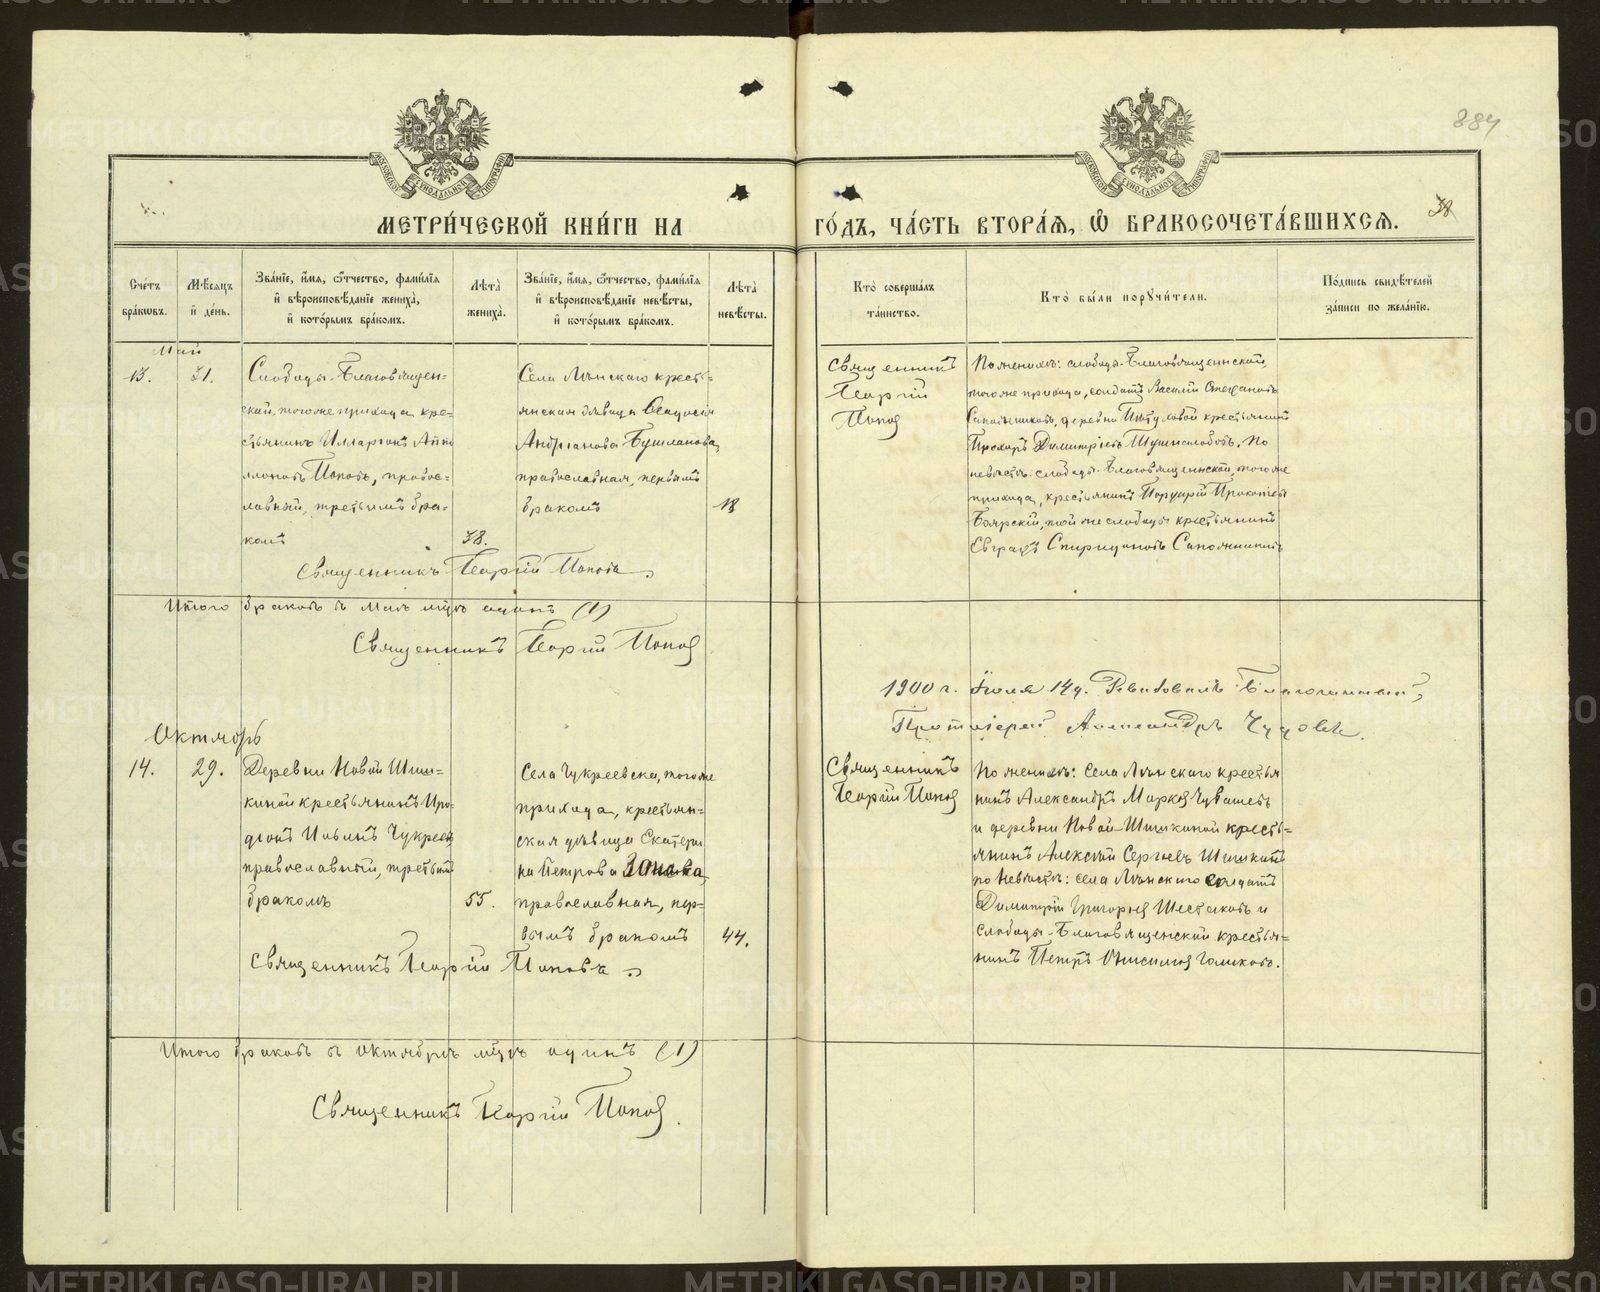 МЕТРИ́ЧЕСКОЙ КНИ́ГИ НА
ГО́ДЪ, ЧА́СТЬ ВТОРА́Я, Ѡ БРАКОСОЧЕТА́ВШИХСЯ.
384
38
Сче́тъ бра́кѡвъ.
Мѣ́сяцъ и де́нь.
Зва́нїе, и́мя, ѻ́тчество, фами́лїя и вѣроисповѣ́данїе жениха̀, и кото́рымъ бра́комъ.
Лѣ́та жениха̀.
Зва́нїе, и́мя, ѻ́тчество, фами́лїя и вѣроисповѣ́данїе невѣ́сты, и кото́рымъ бра́комъ.
Лѣ́та невѣ́сты.
Кто̀ соверша́лъ та́инство.
Кто̀ бы́ли порꙋчи́тели.
По́дпись свидѣ́телей за́писи по жела́нїю.
Май
13.
31.
Слободы Благовѣщен-
ской, того же прихода, кре-
стьянинъ Илларіонъ Апол
лоновъ Поповъ, правос-
лавный, третьимъ бра-
комъ
38.
Села Лянскаго кресть-
янская дѣвица Ѳеодосія
Андріанова Бушланова,
православная, первымъ
бракомъ
18
Священникъ
Георгій
Попов
По женихѣ: слободы Благовѣщенской,
того же прихода, солдатъ Василій Степановъ
Сапожниковъ, деревни Пѣтуховой крестьянинъ
Прохоръ Димитріевъ Шушиалобовъ. По
невѣстѣ: слободы Благовѣщенской, того же
прихода, крестьянинъ Порфирій Прокопьевъ
Боярскій, той же слободы крестьянинъ
Евграфъ Спиридоновъ Сапожниковъ
Священникъ Георгій Поповъ.
Итого браковъ въ маѣ мцѣ одинъ (1)
Священникъ Георгій Попов
1900 г. Іюля 14 д. Ревизовалъ Благочинный,
Протоіерей Александръ Чудовск.
Октябрь
14.
29.
Деревни Новой Шиш-
киной крестьянинъ Иро-
діонъ Іовлевъ Чукреевъ
православный, третьимъ
бракомъ
55.
Села Чукреевска, того же
прихода, крестьян-
ская дѣвица Екатери
на Петрова
православная, пер-
вымъ бракомъ
44.
Священникъ
Георгій Попов
По женихѣ: села Лянскаго крестья
нинъ Александръ Марков Чувашевъ
и деревни Новой-Шишкиной кресть-
янинъ Алексѣй Сергѣевъ Шишкинъ
по невѣстѣ: села Лянскаго солдатъ
Димитрій Григорьев Шестаковъ и
слободы Благовѣщенской крестья-
нинъ Петръ Онисимов Голиковъ.
Священникъ Георгій Поповъ
Итого браковъ въ октябрѣ мцѣ одинъ (1)
Священникъ Георгій Попов.
METRIKI.GASO-URAL.RU